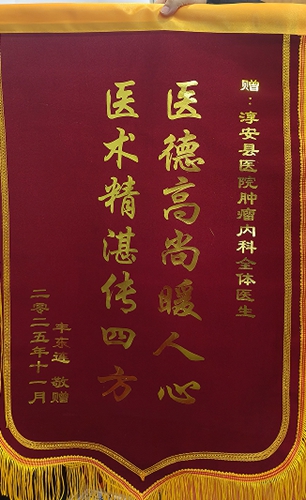 赠：淳安县医院肿瘤内科全体医生
医德高尚暖人心
医术精湛传四方
丰东远 敬赠
二零二五年十一月